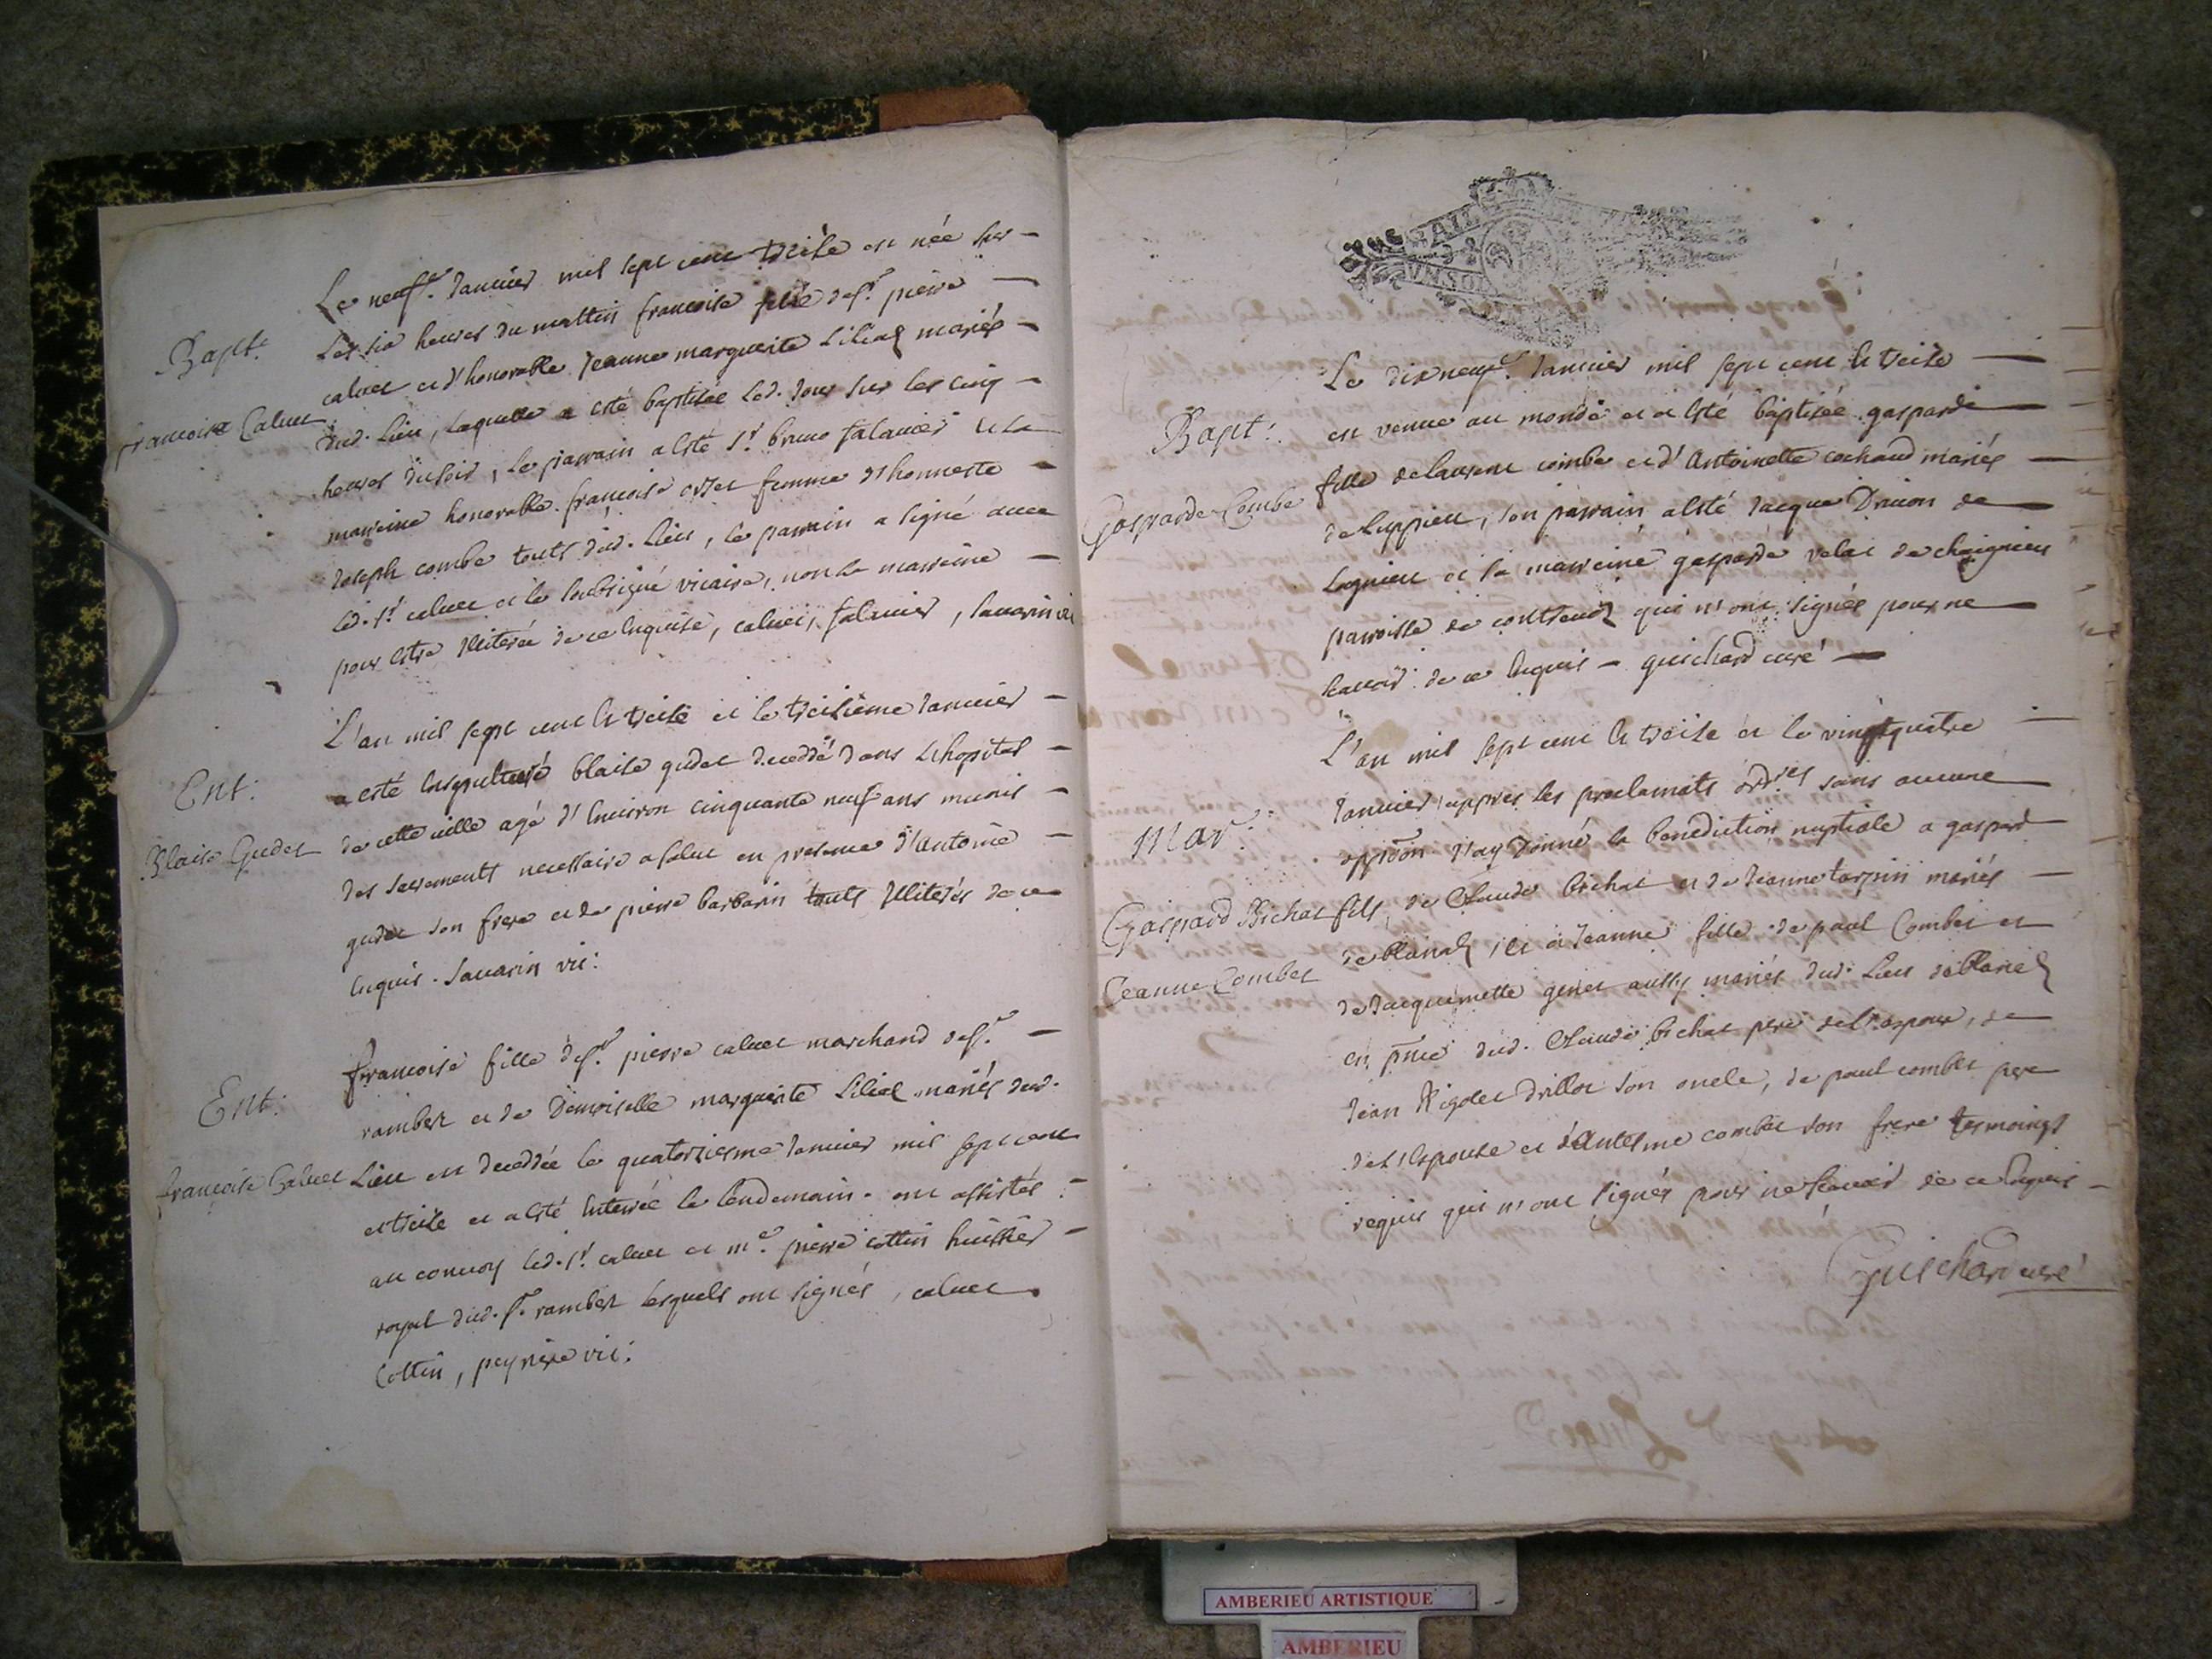 Le neuf.e Janvier mil sept cent treise est née sur
Les six heures du mattin francoise fille de s.r pierre
calvet et d'honorable Jeanne marguerite Liliaz mariés
Bapt.
dud. Lieu, laquelle a esté baptisée led. Jour sur les cinq
francoise Calvet
heures du soir, le parrain a esté s.r bruno falavier et la
marreine honorable francoise orset femme d'honneste
Joseph combe touts dud. Lieu, le parrain a signé avec
led. s.r calvet et le soubsigné vicaire, non la marreine
pour estre Illiterée de ce Enquise, calvet, falavier, savarin vic
L'an mil sept cent et treise et le treisième Janvier
Ent:
a esté Ensepulturé blaise gudet deceddé dans L'hopital
Blaise Gudet
de cette ville agé d'Environ cinquante neuf ans munis
des sacrements necessaire a salut en presence d'Antoine
gudet son frere et de pierre barbarin touts Illiterés de ce
Enquis. Savarin vic:
francoise fille de s.r pierre calvet marchand de s.t
Ent:
rambert et de Demoiselle marguerite Liliaz mariés dud.
françoise Calvet
Lieu est deceddée le quatorziesme Janvier mil sept cent
et treise et a esté Enterrée le lendemain. ont assistés
au convoy led. s.r calvet et m.e pierre cottin huissier
royal dud. s.t rambert lesquels ont signés, calvet
Cottin, peyriere vic:
Le dix neuf.e Janvier mil sept cent et treise
Bapt:
est venue au monde et a esté baptisée gasparde
fille de laurent combe et d'Antoinette cochand mariés
Gasparde Combe
de Luppieu, son parrain a esté Jacque Druon de
Lagnieu et sa marreine gasparde velat de chaignieu
parroisse de contrevoz qui n'ont signés pour ne
scavoir de ce Enquis - guichard curé
L'an mil sept cent et treise et le vingtquatre
Janvier, appres les proclamats ord.res sans aucune
Mar:
opp̃on J'ay Donné la benediction nuptiale a gaspard
Gaspard Bichat
fils, de Claude bichat et de Jeanne tarpin mariés
Jeanne Combet
de blanaz, et a Jeanne fille de paul Combet et
de Jacquemette genet aussy mariés dud. Lieu de blanaz
en pñce dud. Claude bichat pere de l'espoux, de
Jean Rigolet Drillot son oncle, de paul combet pere
de l'Espouse et d'Antesme combet son frere tesmoings
requis qui n'ont signés pour ne scavoir de ce Enquis
Guichard curé
AMBERIEU ARTISTIQUE
AMBERIEU